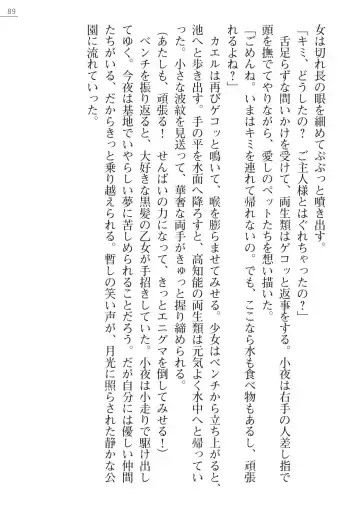 89
女は切れ長の眼を細めてぷぷっと噴き出す。
「キミ、どうしたの？　ご主人様とはぐれちゃったの？」
　舌足らずな問いかけを受けて、両生類はゲコッと返事をする。小夜は右手の人差し指で
頭を撫でてやりながら、愛しのペットたちを想い描いた。
「ごめんね。いまはキミを連れて帰れないの。でも、ここなら水も食べ物もあるし、頑張
れるよね？」
　カエルは再びゲコッと鳴いて、喉を膨らませてみせる。少女はベンチから立ち上がると、
池へと歩き出す。手の平を水面へ降ろすと、高知能の両生類は元気よく水中へと帰ってい
った。小さな波紋を見送って、華奢な両手がきゅっと握り締められる。
（あたしも、頑張る！　せんぱいの力になって、きっとエニグマを倒してみせる！）
　ベンチを振り返ると、大好きな黒髪の乙女が手招きしていた。小夜は小走りで駆け出し
てゆく。今夜は基地でいやらしい夢に苦しめられることだろう。だが自分には優しい仲間
たちがいる、だからきっと乗り越えられる。暫しの笑い声が、月光に照らされた静かな公
園に流れていった。